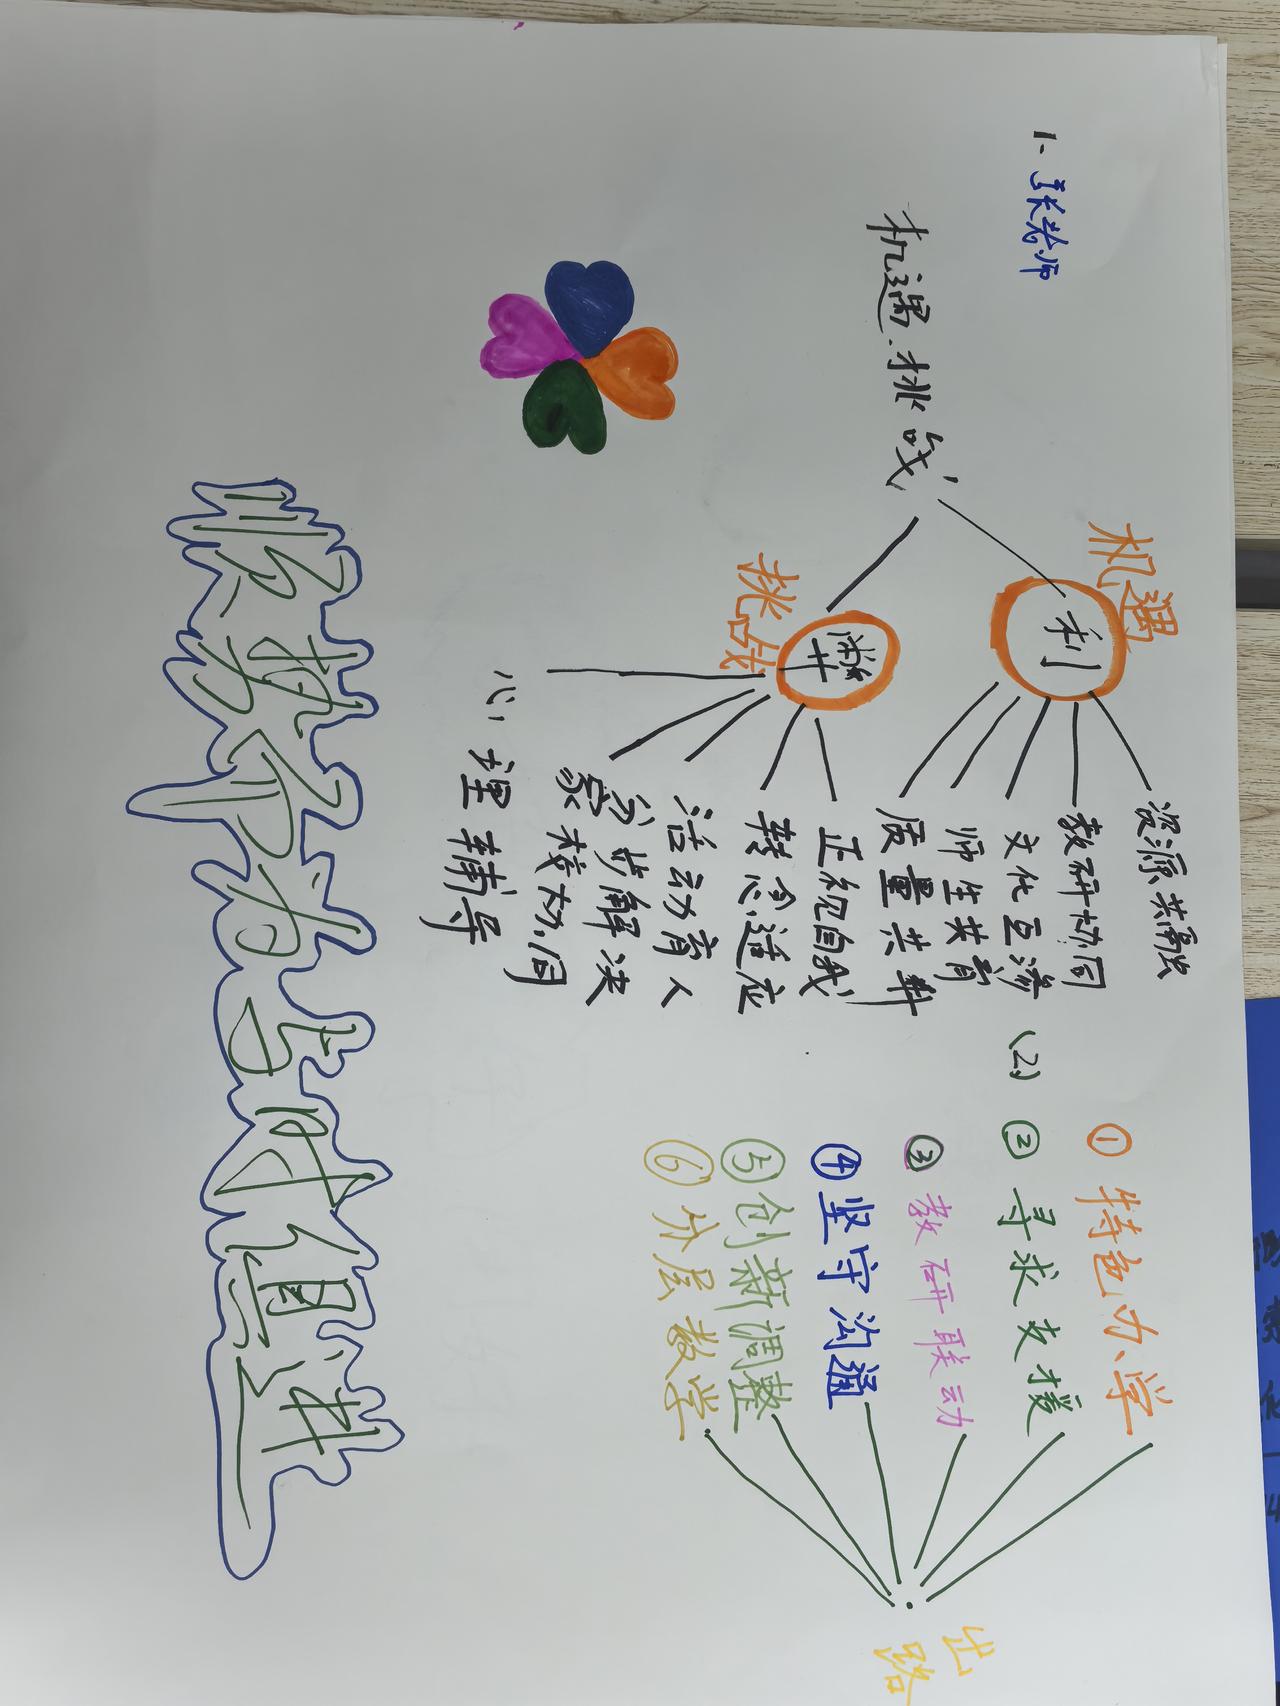 1、张老师
机遇、挑战
机遇
利
资源共融
教研协同
文化互渗
师生共育
质量共耕
挑战
弊
正视自我
转念适应
活动育人
分步解决
家校协同
心理辅导
(2)
① 特色办学
② 寻求支援
③ 教研联动
④ 坚守沟通
⑤ 创新调整
⑥ 分层教学
出路
与时俱进